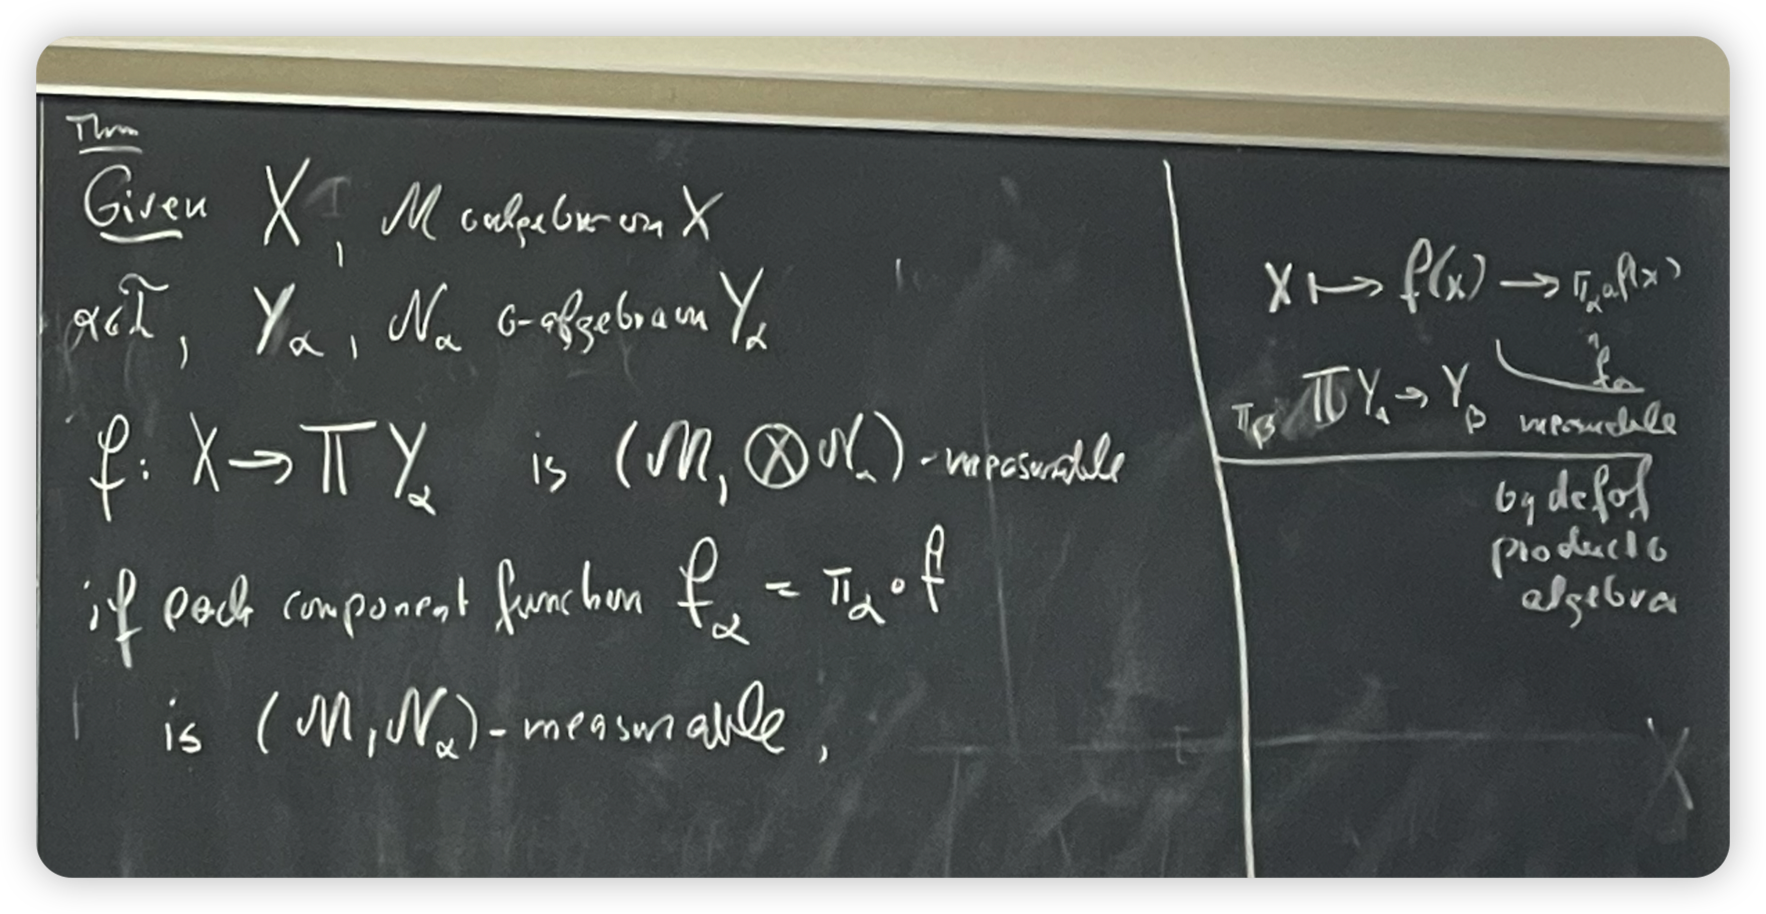 Thm
Given X, M σ-algebra on X
α∈I, Y_α, N_α σ-algebra on Y_α
f: X → ΠY_α is (M, ⊗N_α)-measurable
if each component function f_α = π_α∘f
is (M, N_α)-measurable,
x ↦ f(x) → π_α∘f(x)
f_α
π_β ΠY_α → Y_β measurable
by def of
product σ
algebra